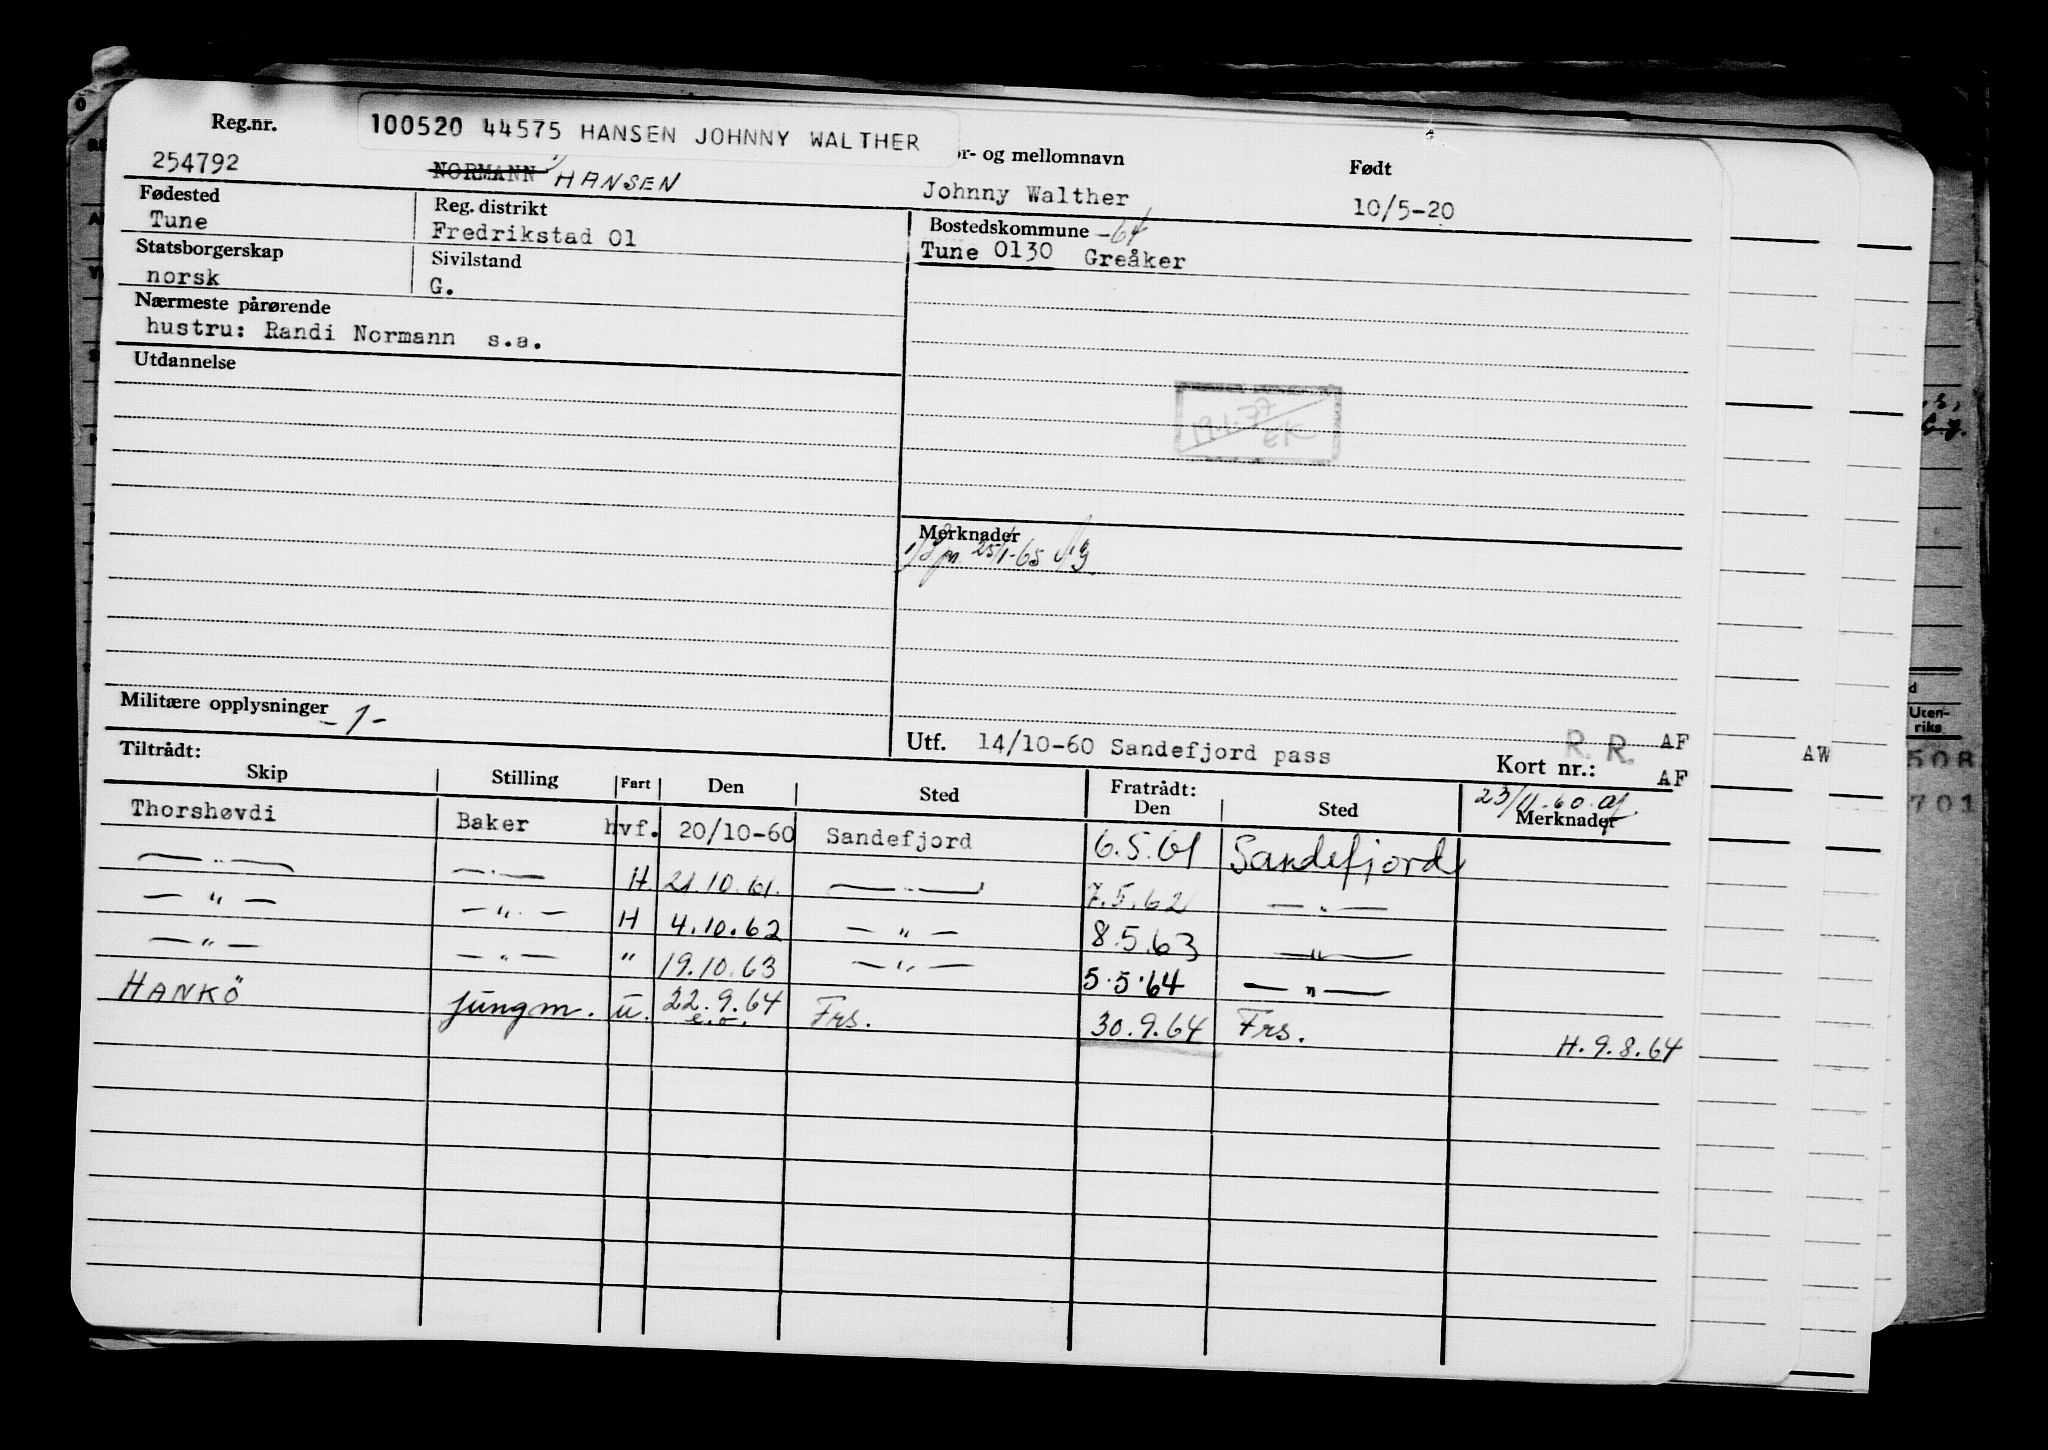 Reg.nr. 100520 44575 HANSEN JOHNNY WALTHER
or- og mellomnavn Født
254792 NORMANN HANSEN Johnny Walther 10/5-20
Fødested Reg. distrikt Bostedskommune -64
Tune Fredrikstad 01 Tune 0130 Greåker
Statsborgerskap Sivilstand
norsk G.
Nærmeste pårørende
hustru: Randi Normann s.a.
Utdannelse
19.1.77
EK
Merknader
25/1-65
Militære opplysninger -1-
Utf. 14/10-60 Sandefjord pass R.R. AF
Kort nr.: AF
AW
Tiltrådt: Fratrådt: 23/11-60 af
Skip Stilling Fart Den Sted Den Sted Merknader
Thorshøvdi Baker hvf. 20/10-60 Sandefjord 6.5.61 Sandefjord
— " — — " — H 21.10.61. — " — 7.5.62 — " —
— " — — " — H 4.10.62 — " — 8.5.63 — " —
— " — — " — " 19.10.63 — " — 5.5.64 — " —
HANKÖ jungm. u. 22.9.64 Frs. 30.9.64 Frs. H. 9.8.64
e.o.
Uten-
riks
508
701